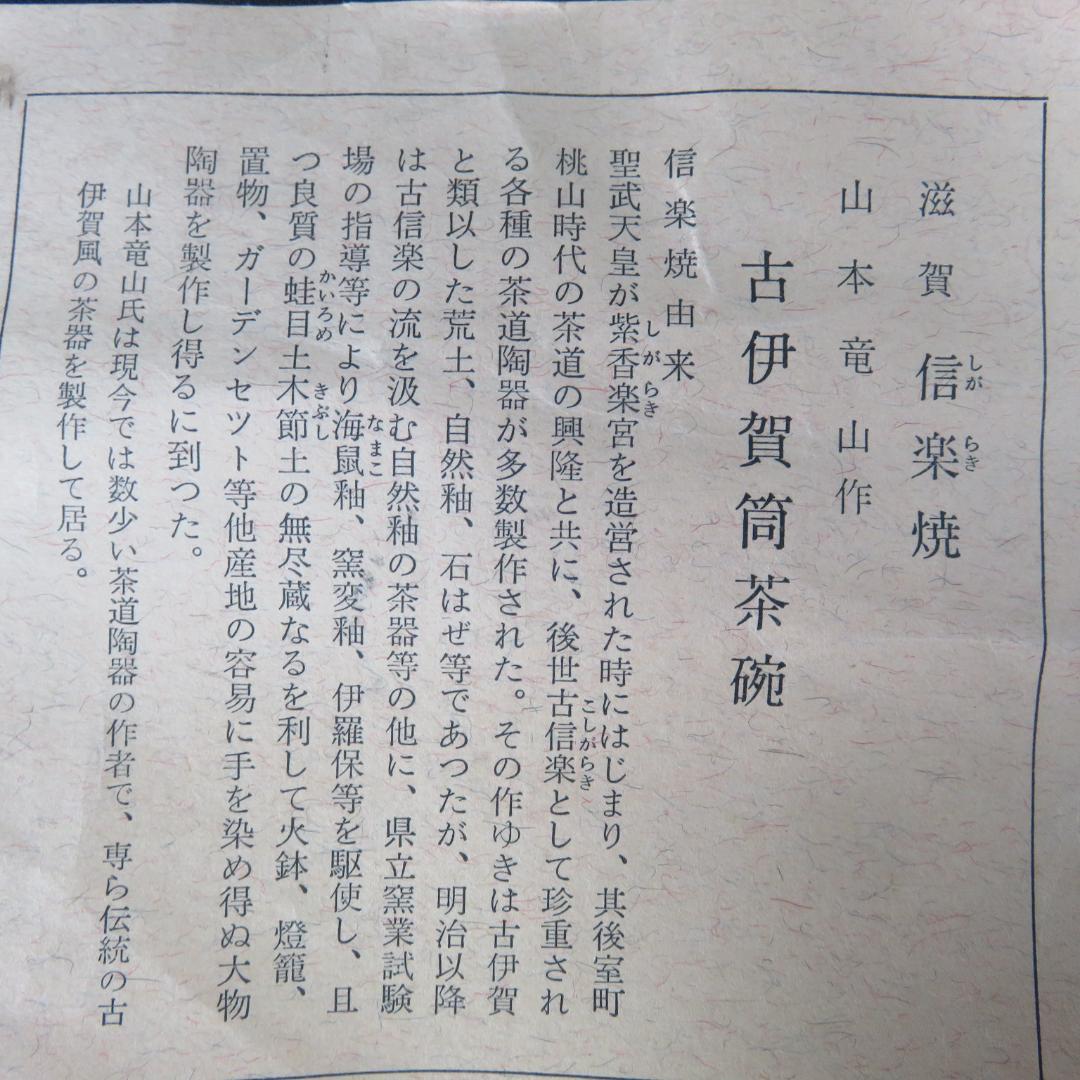 滋賀 信楽焼
しが らき
山本竜山作
古伊賀筒茶碗
信楽焼由来
聖武天皇が紫香楽宮を造営された時にはじまり、其後室町
しが らき
桃山時代の茶道の興隆と共に、後世古信楽として珍重され
こしがらき
る各種の茶道陶器が多数製作された。その作ゆきは古伊賀
と類以した荒土、自然釉、石はぜ等であつたが、明治以降
は古信楽の流を汲む自然釉の茶器等の他に、県立窯業試験
場の指導等により海鼠釉、窯変釉、伊羅保等を駆使し、且
なまこ
つ良質の蛙目土木節土の無尽蔵なるを利して火鉢、燈籠、
かいろめ きぶし
置物、ガーデンセツト等他産地の容易に手を染め得ぬ大物
陶器を製作し得るに到つた。
山本竜山氏は現今では数少い茶道陶器の作者で、専ら伝統の古
伊賀風の茶器を製作して居る。